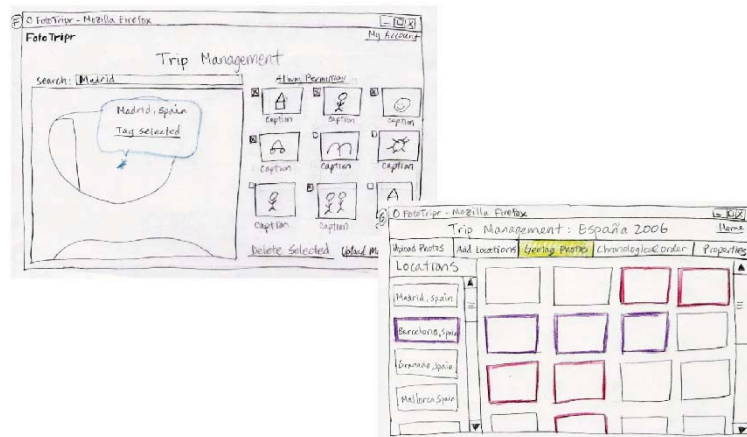 FotoTripr - Mozilla Firefox
FotoTripr
My Account
Trip Management
Search: Madrid
Album Permission
Madrid, Spain
Tag Selected
caption
caption
caption
caption
caption
caption
caption
caption
Delete Selected
Upload
FotoTripr - Mozilla Firefox
Trip Management: España 2006
Home
Upload Photos
Add Locations
Geotag Photos
Chronological order
Properties
Locations
Madrid, Spain
Barcelona, Spain
Granada, Spain
Mallorca, Spain